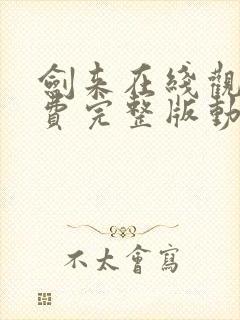 劍来在綫觀
費完整版動
不太會寫